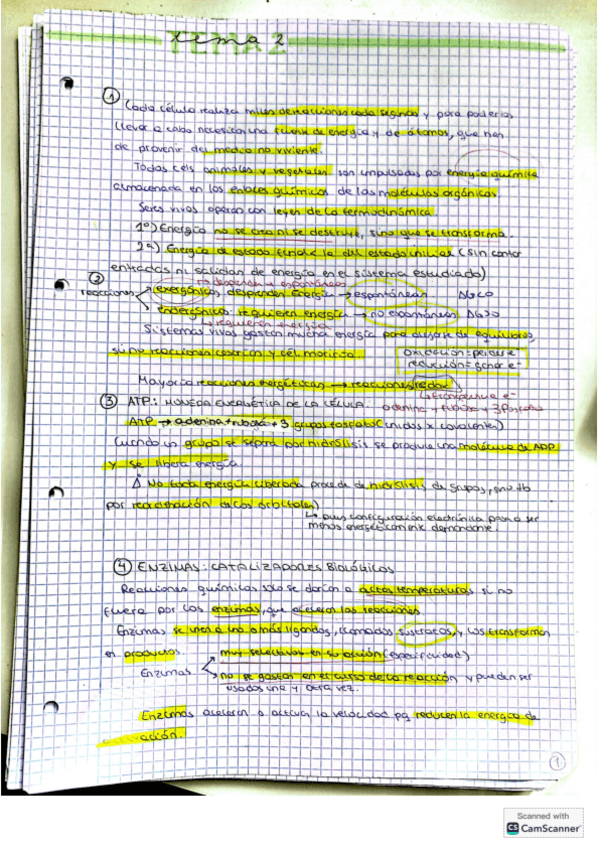 Tema 2
TEMA 2
① Cada célula realiza miles de reacciones cada segundo y para poderlas
llevar a cabo necesitan una fuente de energía y de átomos, que han
de provenir del medio no viviente.
Todas céls animales y vegetales son impulsadas por energía química
almacenada en los enlaces químicos de las moléculas orgánicas.
Seres vivos operan con leyes de la termodinámica
1º) Energía no se crea ni se destruye, sino que se transforma.
2º) Energía de estado final < la del estado inicial (sin contar
entradas ni salidas de energía en el sistema estudiado)
②
reacciones
exergónicas: desprenden energía → espontáneas ΔG<0
endergónicas: requieren energía → no espontáneas ΔG>0
↳ requieren energía
Sistemas vivos gastan mucha energía para alejarse de equilibrios,
si no reacciones cesarían y cél moriría.
oxidación = perder e⁻
reducción = ganar e⁻
Mayoría reacciones energéticas → reacciones redox
↳ transfiere e⁻
③ ATP: MONEDA ENERGÉTICA DE LA CÉLULA.
ATP → adenina + ribosa + 3 grupos fosfato (unidos x covalentes)
Cuando un grupo se separa por hidrólisis se produce una molécula de ADP
y se libera energía.
Δ No toda energía liberada procede de hidrólisis de grupos, sino tb
por reordenación de los orbitales)
↳ pues configuración electrónica pasa a ser
menos energéticamnte demandante.
④ ENZIMAS: CATALIZADORES BIOLÓGICOS
Reacciones químicas solo se darían a altas temperaturas si no
fuera por las enzimas, que aceleran las reacciones
Enzimas se unen a uno o más ligandos, llamados sustratos, y los transforman
en productos.
Enzimas
muy selectivas en su acción (especificidad)
no se gastan en el curso de la reacción y pueden ser
usadas una y otra vez.
Enzimas aceleran o activa la velocidad pq reducen la energía de
activación.
①
Scanned with
CS CamScanner